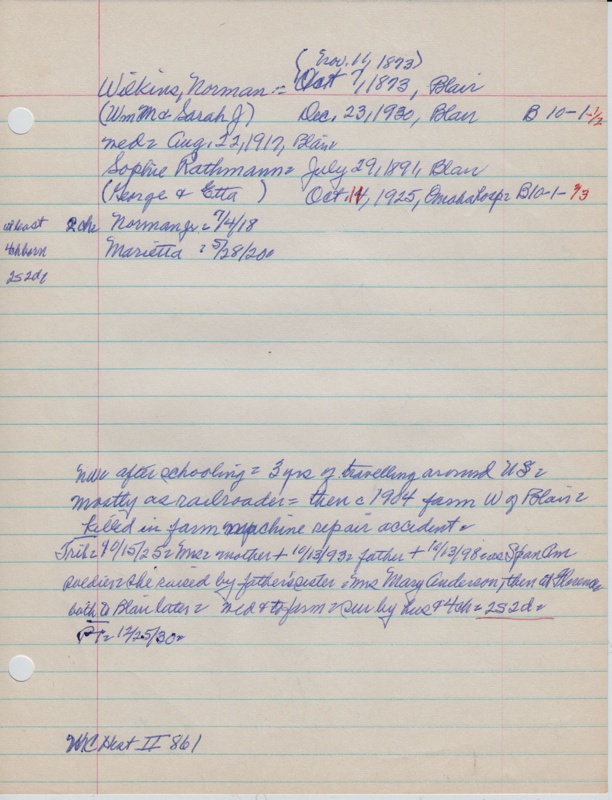 (Nov. 11, 1873)
Wilkins, Norman = Oct 7, 1873, Blair
(Wm M & Sarah J) Dec. 23, 1930, Blair B 10-1-1/2
med = Aug. 22, 1917, Blair
Sophie Rathmann = July 29, 1891, Blair
(George & Etta ) Oct. 14, 1925, Omaha hosp = B10-1-3/3
at least 2ch = Norman Jr = 7/4/18
4ch born Marietta = 5/28/20=
2s2d=
after schooling = 3 yrs of travelling around US =
mostly as railroader = then c 1904 farm W of Blair =
killed in farm machine repair accident =
Trib = 10/15/25 = Mrs = mother + 10/13/93 = father + 10/13/98 = as Span Am
soldier = she raised by father's sister = Mrs Mary Anderson, then at Florence
both to Blair later = med & to farm = sur by hus & 4ch = 2s2d =
PT = 12/25/30 =
W.C Hist II 861